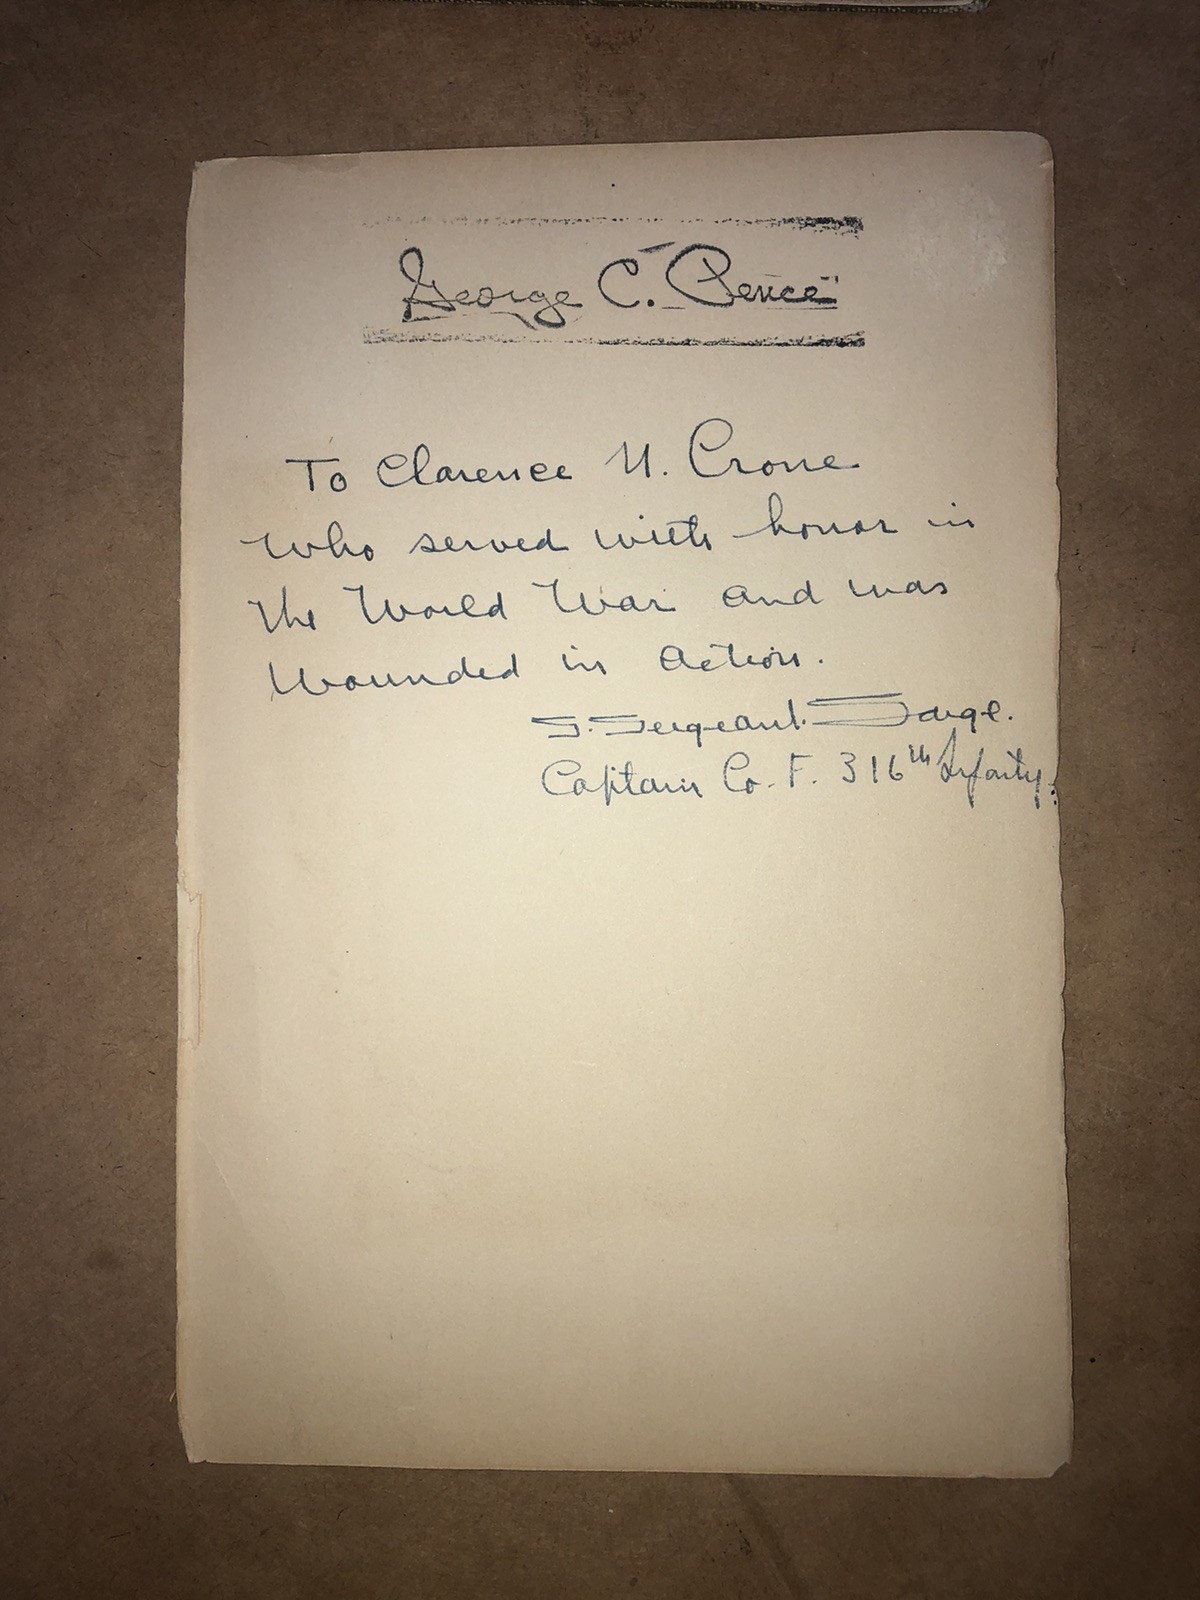 George C. Pence
To Clarence N. Crone
who served with honor in
the World War and was
Wounded in action.
Captain Co. F. 316th Infantry.